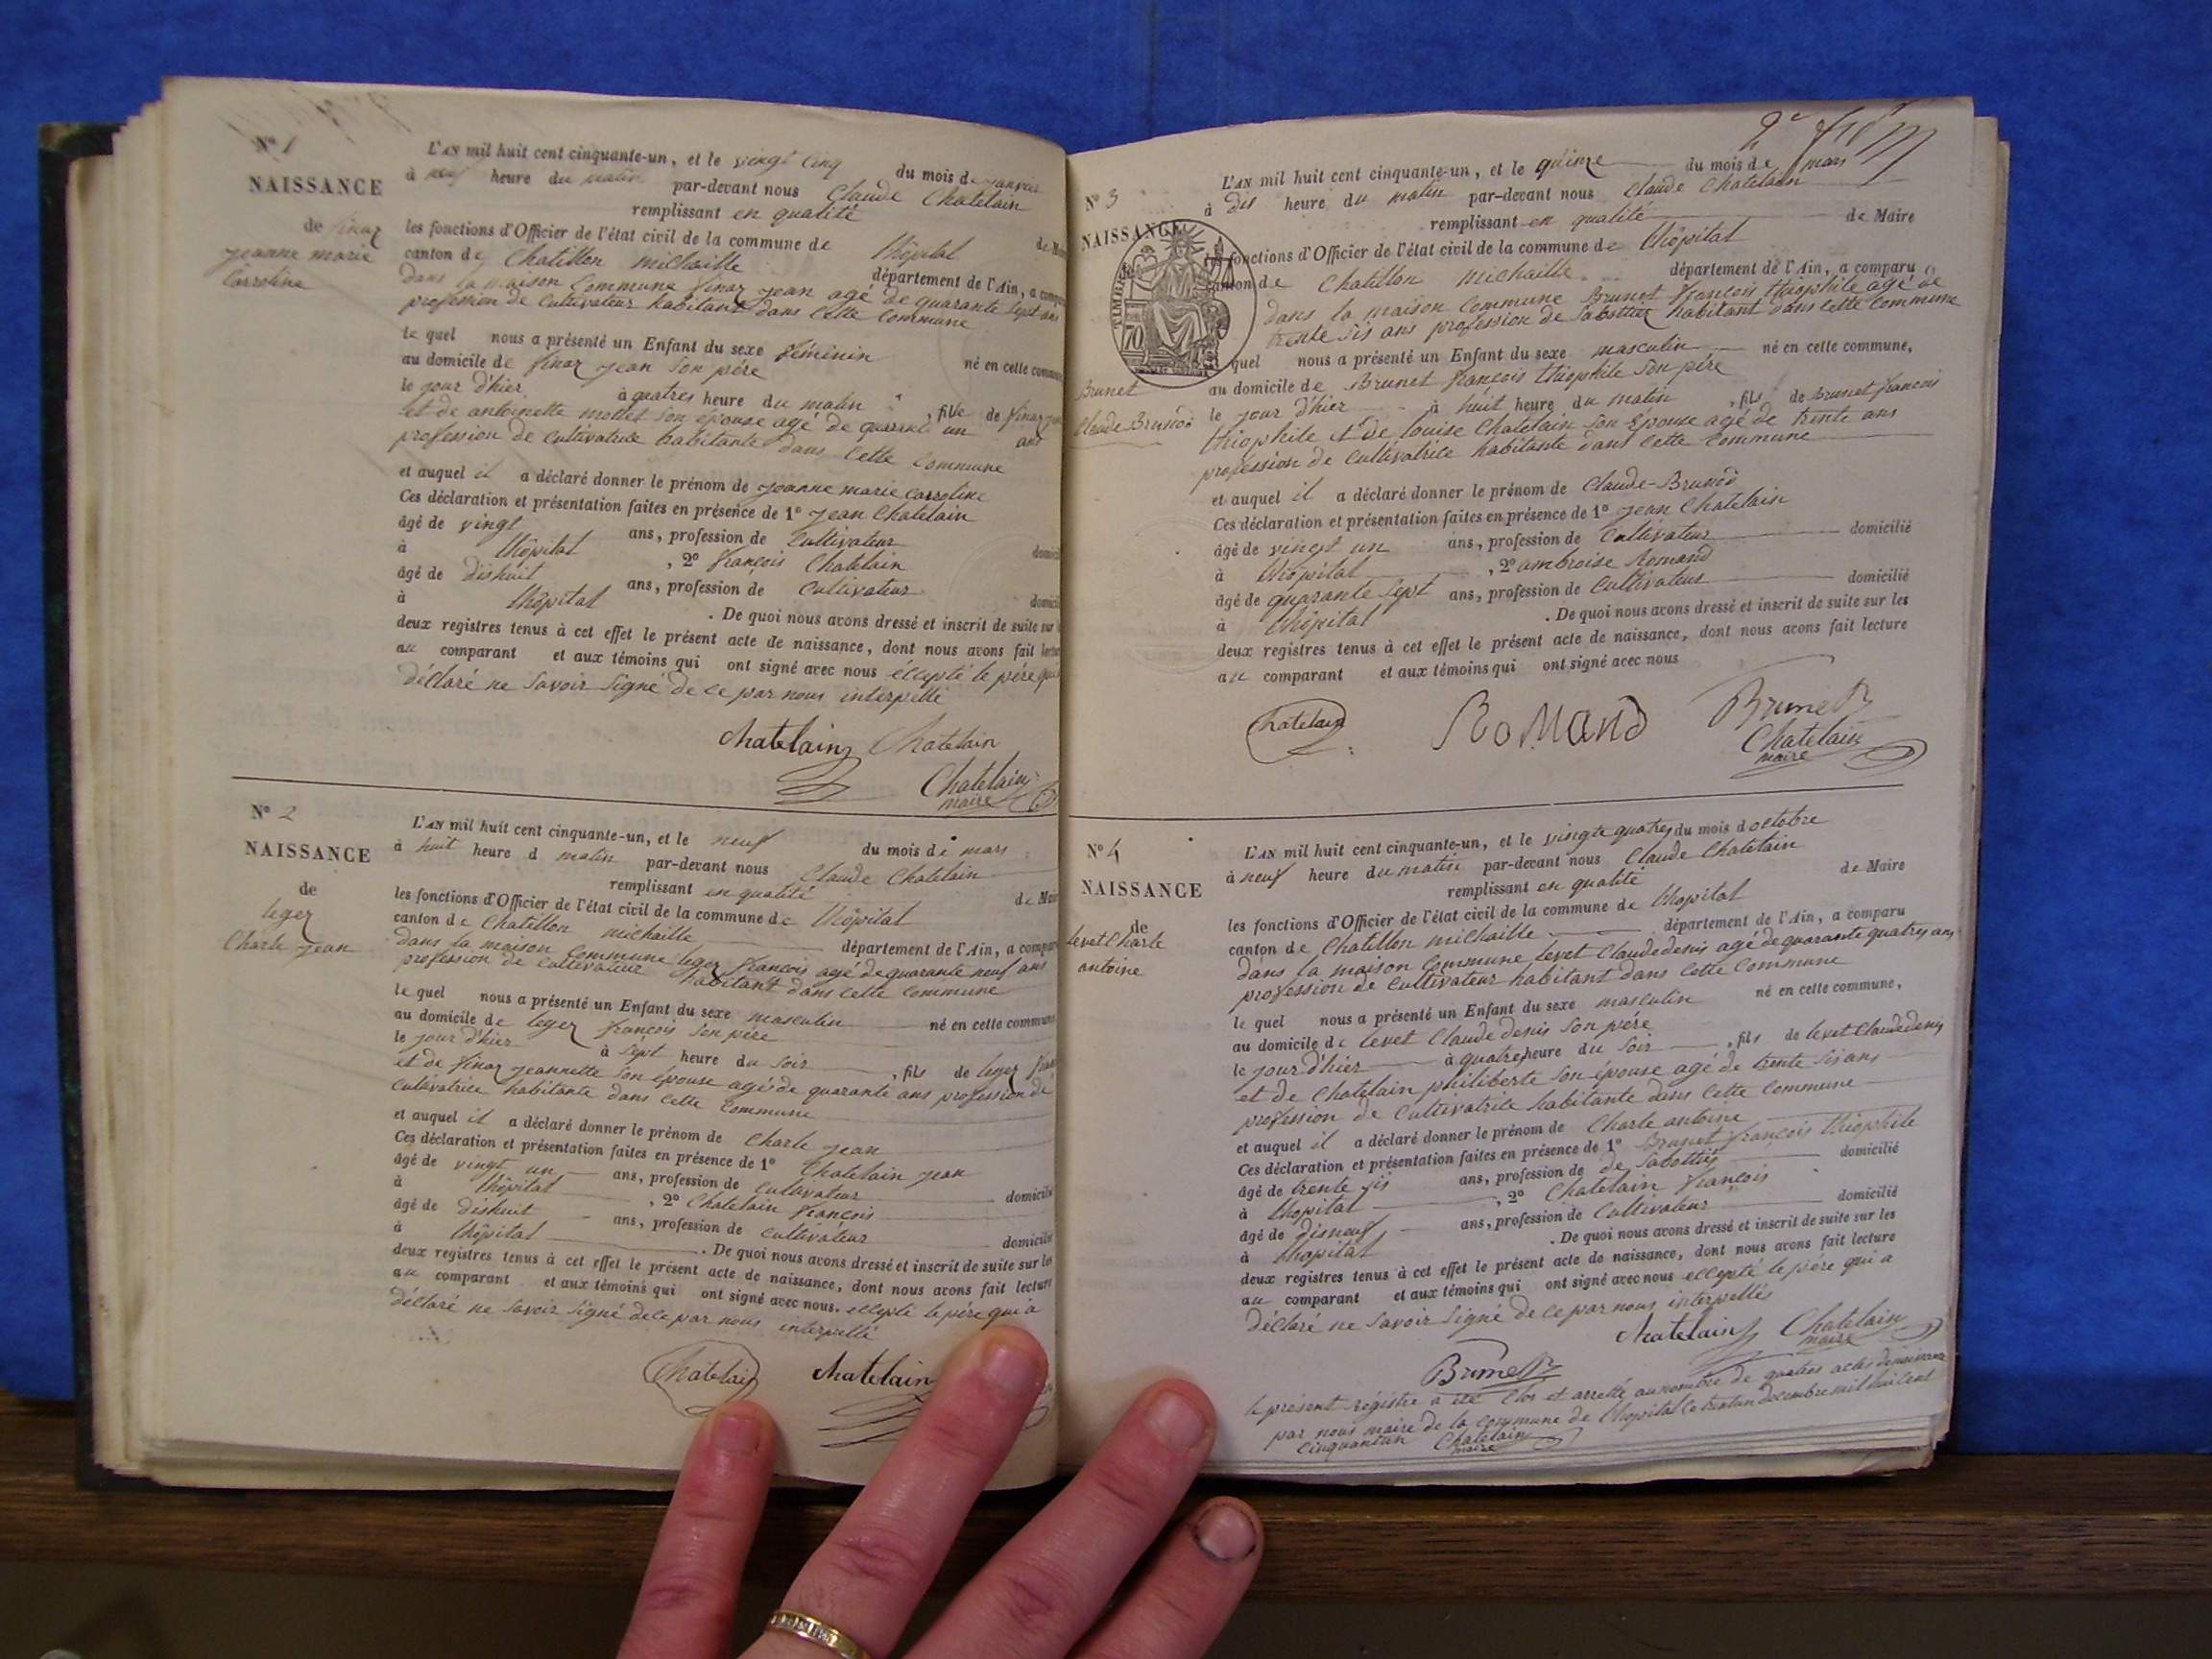 Nº 1
NAISSANCE
de finaz
jeanne marie
Carroline
L'AN mil huit cent cinquante-un, et le vingt cinq du mois de janvier
à neuf heure du matin par-devant nous Claude Chatelain
remplissant en qualité de Mai
les fonctions d'Officier de l'état civil de la commune de lhôpital
canton de Chatillon michaille département de l'Ain, a compa
dans la maison Commune finaz jean agé de quarante sept ans
profession de Cultivateur habitant dans cette Commune
le quel nous a présenté un Enfant du sexe féminin né en cette commune
au domicile de finaz jean son père
le jour d'hier à quatres heure du matin , fille de finaz
et de antoinette mottet son épouse agé de quarante un ans
profession de cultivatrice habitante dans cette Commune
et auquel il a déclaré donner le prénom de jeanne marie carroline
Ces déclaration et présentation faites en présence de 1º jean Chatelain
âgé de vingt ans, profession de Cultivateur domici
à lhôpital , 2º françois Chatelain
âgé de dishuit ans, profession de Cultivateur domici
à lhôpital . De quoi nous avons dressé et inscrit de suite sur
deux registres tenus à cet effet le présent acte de naissance, dont nous avons fait lectu
au comparant et aux témoins qui ont signé avec nous éllepté le père qui
déclaré ne savoir signé de ce par nous interpellé
Chatelain Chatelain
Chatelain
maire
Nº 2
NAISSANCE
de
leger
Charle jean
L'AN mil huit cent cinquante-un, et le neuf du mois de mars
à huit heure d matin par-devant nous Claude Chatelain
remplissant en qualité de Mair
les fonctions d'Officier de l'état civil de la commune de lhôpital
canton de Chatillon michaille département de l'Ain, a compar
dans la maison Commune leger françois agé de quarante neuf ans
profession de cultivateur habitant dans cette Commune
le quel nous a présenté un Enfant du sexe masculin né en cette commune
au domicile de leger françois son père
le jour d'hier à sept heure du soir , fils de leger
et de finaz jeannette son épouse agé de quarante ans profession de
cultivatrice habitante dans cette Commune
et auquel il a déclaré donner le prénom de Charle jean
Ces déclaration et présentation faites en présence de 1º Chatelain jean
âgé de vingt un ans, profession de cultivateur domicilié
à lhôpital , 2º Chatelain françois
âgé de dishuit ans, profession de cultivateur domicilié
à lhôpital . De quoi nous avons dressé et inscrit de suite sur les
deux registres tenus à cet effet le présent acte de naissance, dont nous avons fait lecture
au comparant et aux témoins qui ont signé avec nous. ellepté le père qui a
déclaré ne savoir signé de ce par nous interpellé
Chatelain Chatelain
2e
Nº 3
NAISSANCE
Brunet
Claude-Brunoò
L'AN mil huit cent cinquante-un, et le quinze du mois de mars
à dis heure du matin par-devant nous Claude Chatelain
remplissant en qualité de Maire
les fonctions d'Officier de l'état civil de la commune de lhôpital
canton de Chatillon michaille département de l'Ain, a comparu
dans la maison Commune Brunet françois théophile agé de
trente sis ans profession de Sabottier habitant dans cette Commune
quel nous a présenté un Enfant du sexe masculin né en cette commune,
au domicile de Brunet françois théophile son père
le jour d'hier à huit heure du matin , fils de Brunet françois
théophile et de louise Chatelain son épouse agé de trente ans
profession de Cultivatrice habitante dans cette Commune
et auquel il a déclaré donner le prénom de Claude-Brunoò
Ces déclaration et présentation faites en présence de 1º jean Chatelain
âgé de vingt un ans, profession de Cultivateur domicilié
à lhôpital , 2º ambroise Romand
âgé de quarante sept ans, profession de Cultivateur domicilié
à lhôpital . De quoi nous avons dressé et inscrit de suite sur les
deux registres tenus à cet effet le présent acte de naissance, dont nous avons fait lecture
au comparant et aux témoins qui ont signé avec nous
Chatelain RoMand Brunet
Chatelain
maire
Nº 4
NAISSANCE
de
levet Charle
antoine
L'AN mil huit cent cinquante-un, et le vingte quatres du mois d octobre
à neuf heure du matin par-devant nous Claude Chatelain
remplissant en qualité de Maire
les fonctions d'Officier de l'état civil de la commune de lhopital
canton de Chatillon michaille département de l'Ain, a comparu
dans la maison Commune levet Claude denis agé de quarante quatres ans
profession de Cultivateur habitant dans cette Commune
le quel nous a présenté un Enfant du sexe masculin né en cette commune,
au domicile de levet Claude denis son père
le jour d'hier à quatres heure du soir , fils de levet Claude denis
et de Chatelain philiberte son épouse agé de trente sis ans
profession de Cultivatrice habitante dans cette Commune
et auquel il a déclaré donner le prénom de Charle antoine
Ces déclaration et présentation faites en présence de 1º Brunet françois théophile
âgé de trente sis ans, profession de de Sabottier domicilié
à lhopital , 2º Chatelain françois
âgé de disneuf ans, profession de Cultivateur domicilié
à lhopital . De quoi nous avons dressé et inscrit de suite sur les
deux registres tenus à cet effet le présent acte de naissance, dont nous avons fait lecture
au comparant et aux témoins qui ont signé avec nous ellepté le père qui a
déclaré ne savoir signé de ce par nous interpellés
Chatelain Chatelain
maire
Brunet
le présent régistre a été Clos et arretté au nombre de quatres actes de naissance
par nous maire de la commune de lhopital le trentun decembre mil huit cent
cinquantun Chatelain
maire